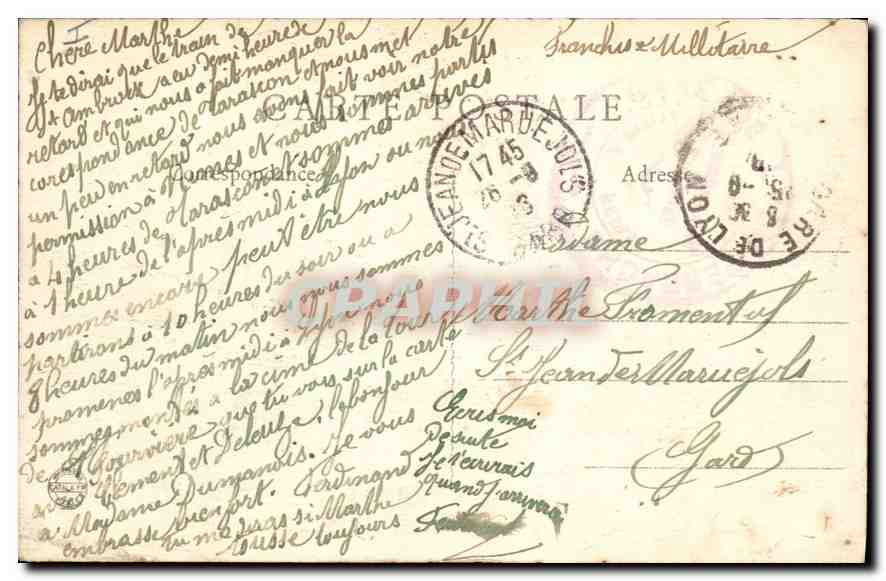 I
Chère Marthe
Je te dirai que le train de
St Ambroix a eu demi heure de
retard et qui nous a fait manquer la
correspondance de Tarascon et nous met
un peu en retard nous avons fait voir notre
permission à Nimes et nous sommes partis
a 4 heures de Tarascon et sommes arrivés
à 1 heure de l'après midi à Lyon ou nous
sommes encore peut être nous
partirons à 10 heures du soir ou a
8 heures du matin nous nous sommes
promenés l'après midi à Lyon nous
sommes montés à la cime de la tour
de Fourvière que tu vois sur la carte
Clément et Deleuze, le bonjour
a Madame Dumanois. Je vous
embrasse bien fort. Ferdinand
Tu me diras si Marthe
tousse toujours
Ecris moi
de suite
Je t'écrirais
quand j'arriverai
Franchise Millitairre
CARTE POSTALE
Correspondance
Adresse
ST JEAN DE MARUEJOLS
17 45
GARD
GARE DE LYON
Madame
Marthe Fromentul
St Jean de Maruéjols
Gard
CPARAMA